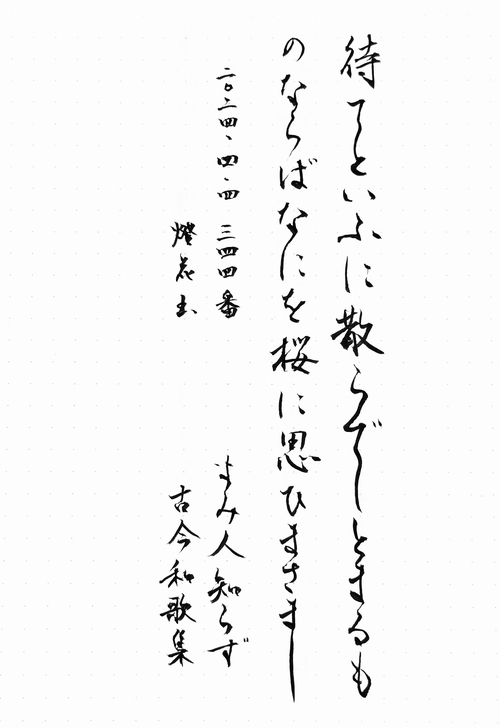 待てといふに散らでしとまるも
のならばなにを桜に思ひまさまし
よみ人知らず
古今和歌集
二〇二四、四、四 三四四番
燈花玉